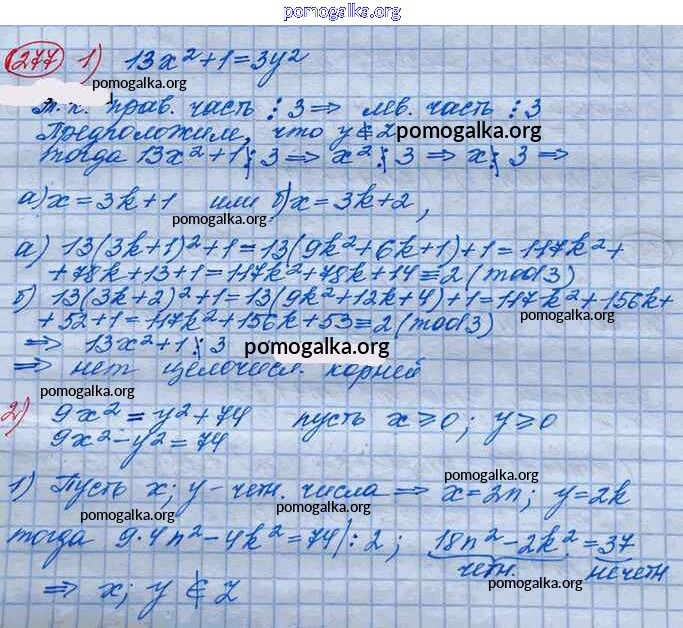 pomogalka.org
277 1) 13x²+1=3y²
pomogalka.org
т.к. прав. часть ⋮ 3 ⇒ лев. часть ⋮ 3
Предположим, что y∉Z
pomogalka.org
тогда 13x²+1 ⋮ 3 ⇒ x² ⋮̸ 3 ⇒ x ⋮̸ 3 ⇒
а) x=3k+1 или б) x=3k+2,
pomogalka.org
а) 13(3k+1)²+1=13(9k²+6k+1)+1=117k²+
+78k+13+1=117k²+78k+14≡2(mod3)
б) 13(3k+2)²+1=13(9k²+12k+4)+1=117k²+156k+
pomogalka.org
+52+1=117k²+156k+53≡2(mod3)
⇒ 13x²+1 ⋮̸ 3
pomogalka.org
⇒ нет целочисл. корней
pomogalka.org
2) 9x²=y²+74 пусть x≥0; y≥0
9x²-y²=74
pomogalka.org
1) Пусть x; y - четн. числа ⇒ x=2n; y=2k
pomogalka.org
pomogalka.org
тогда 9·4n²-4k²=74|:2; 18n²-2k²=37
четн. нечетн
pomogalka.org
⇒ x; y ∉ Z